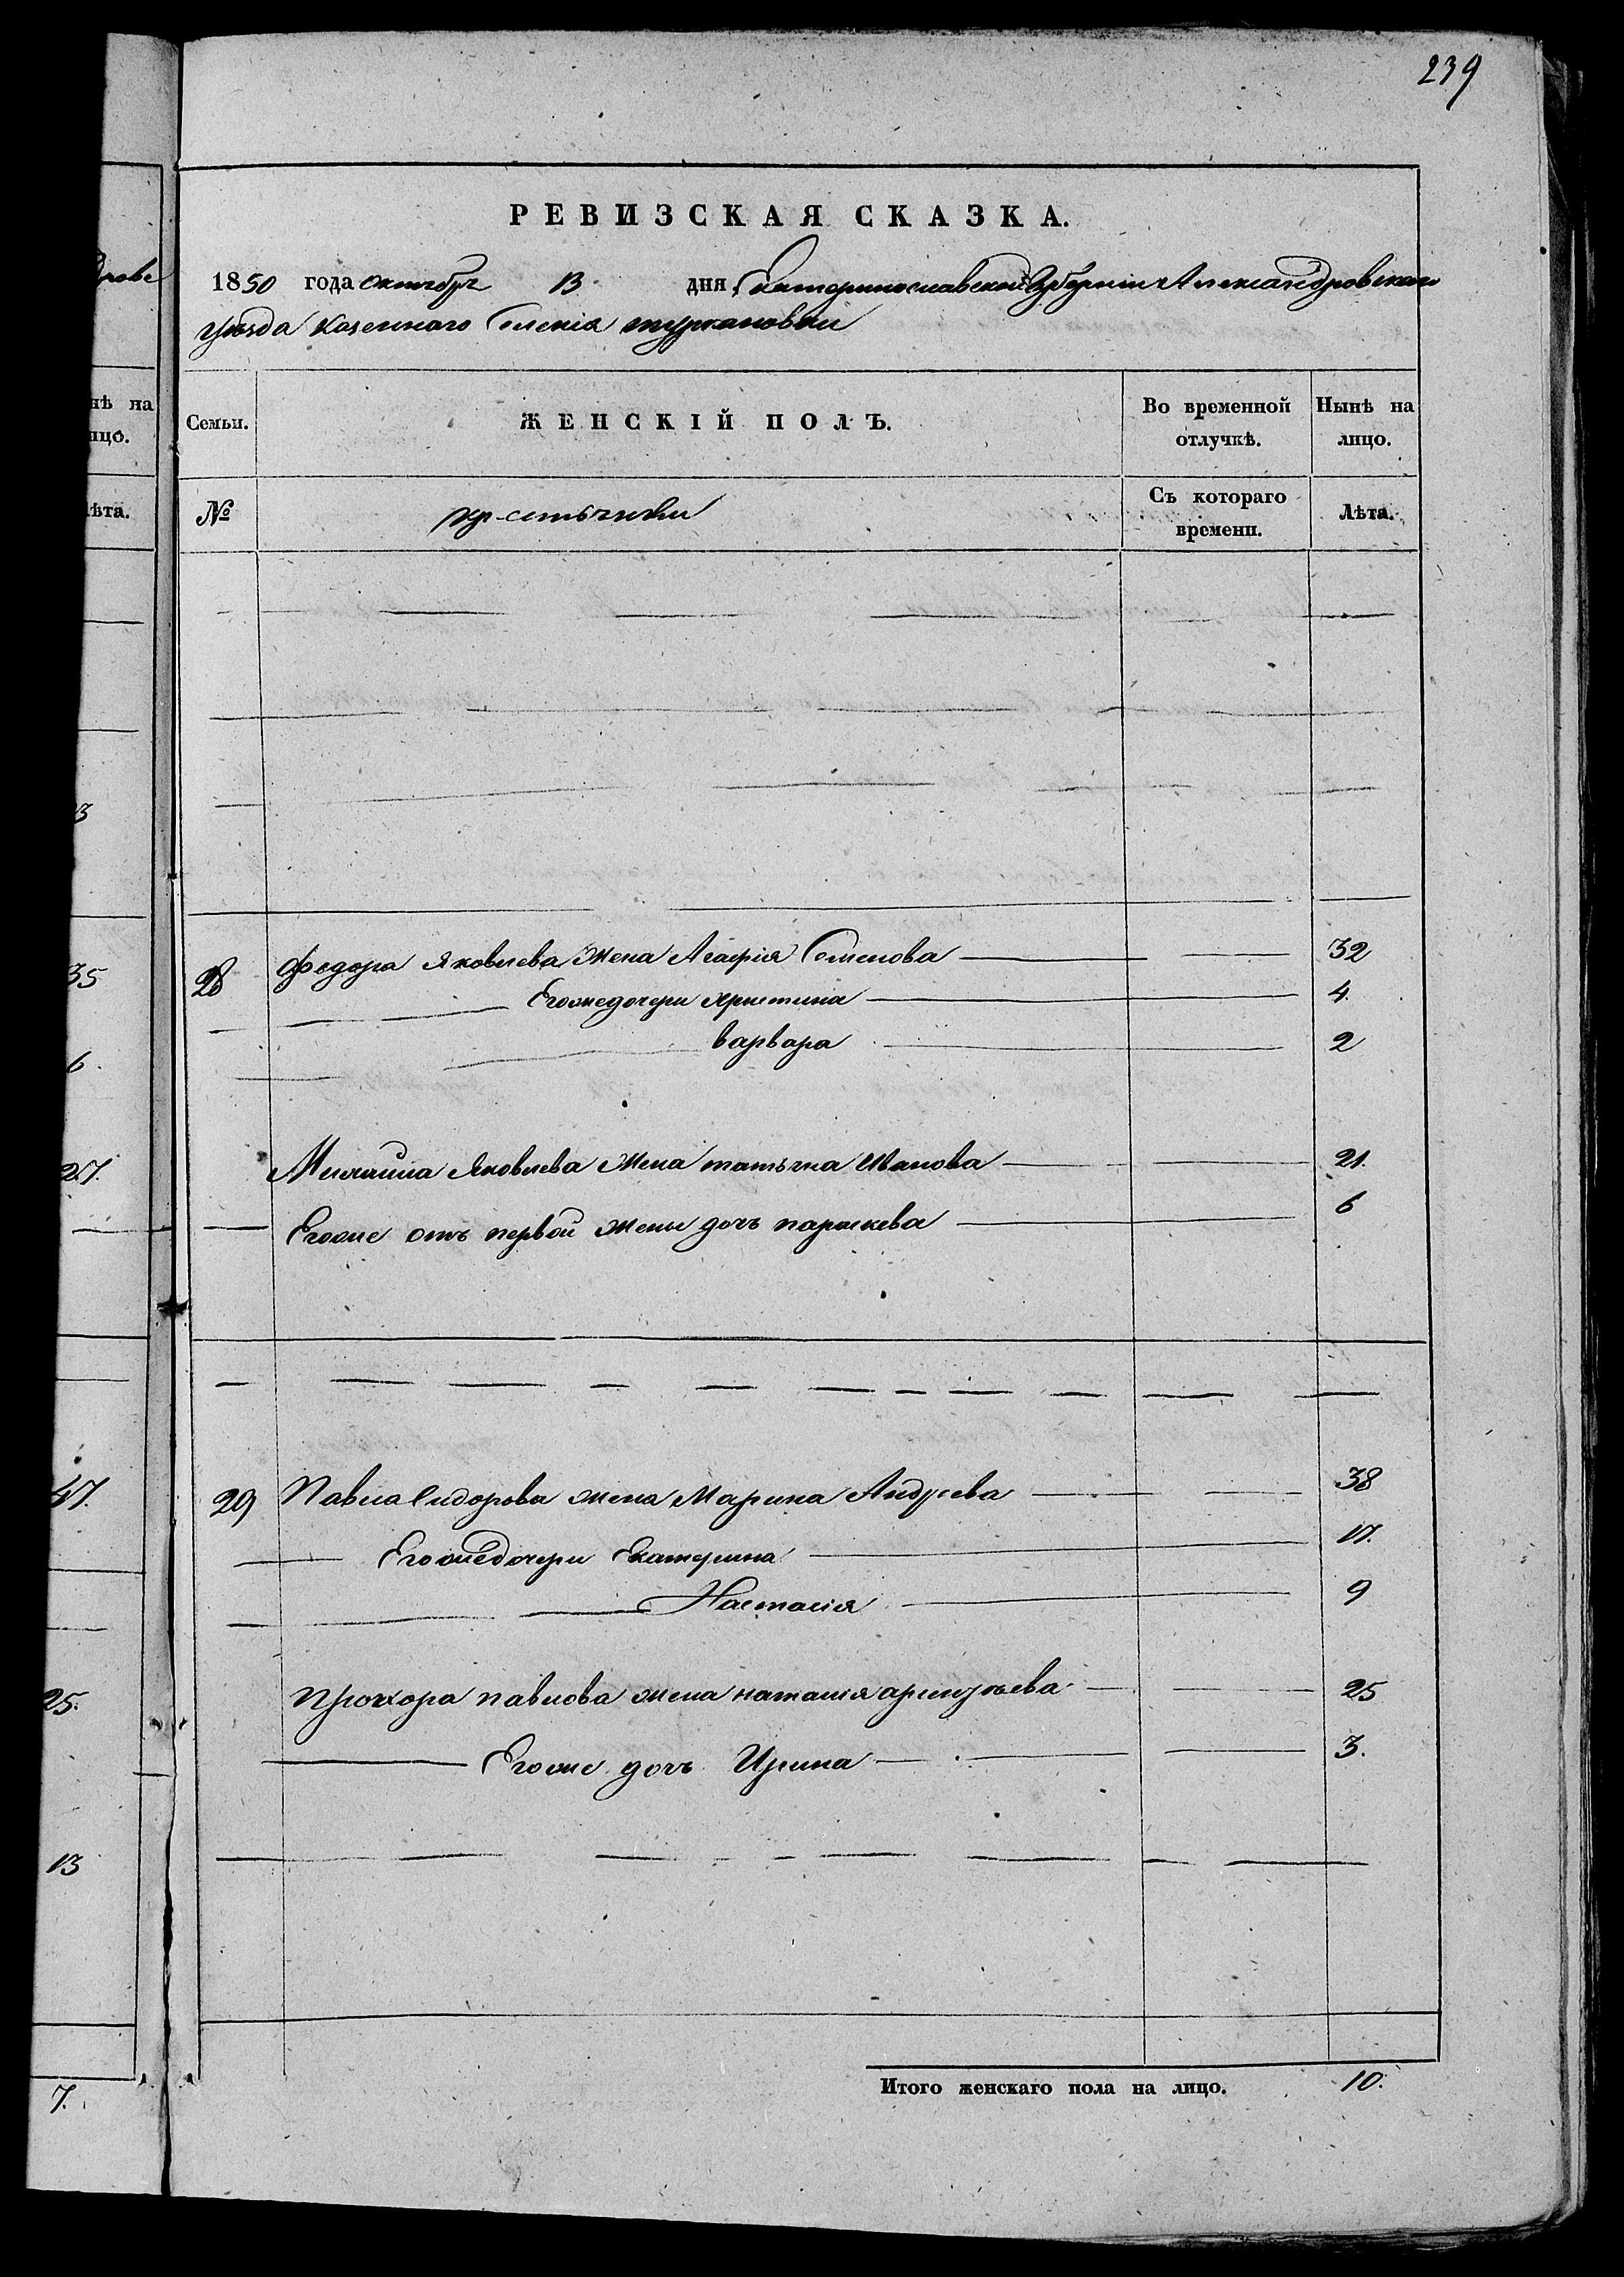 239
РЕВИЗСКАЯ СКАЗКА.
1850 года октября 13 дня Екатеринославской Губерніи Александровскаго
уѣзда казеннаго Селенія туркановки
Семьи.
ЖЕНСКІЙ ПОЛЪ.
Во временной отлучкѣ.
Нынѣ на лицо.
№
Съ котораго времени.
Лѣта.
28 Федора Яковлева Жена Агафія Семенова 32
Егожедочери христина 4.
варвара 2
Михаила Яковлева Жена татьяна Иванова 21.
Егоже отъ первой жены дочь параскева 6
29 Павла Сидорова жена Марина Андреева 38
Егожедочери Екатерина 17.
Настасія 9
прохора павлова жена наталия 25
Егоже дочь Ирина 3.
Итого женскаго пола на лицо. 10.
нѣ на
ицо.
ѣта.
3
35
6.
27.
47.
25.
13
7.